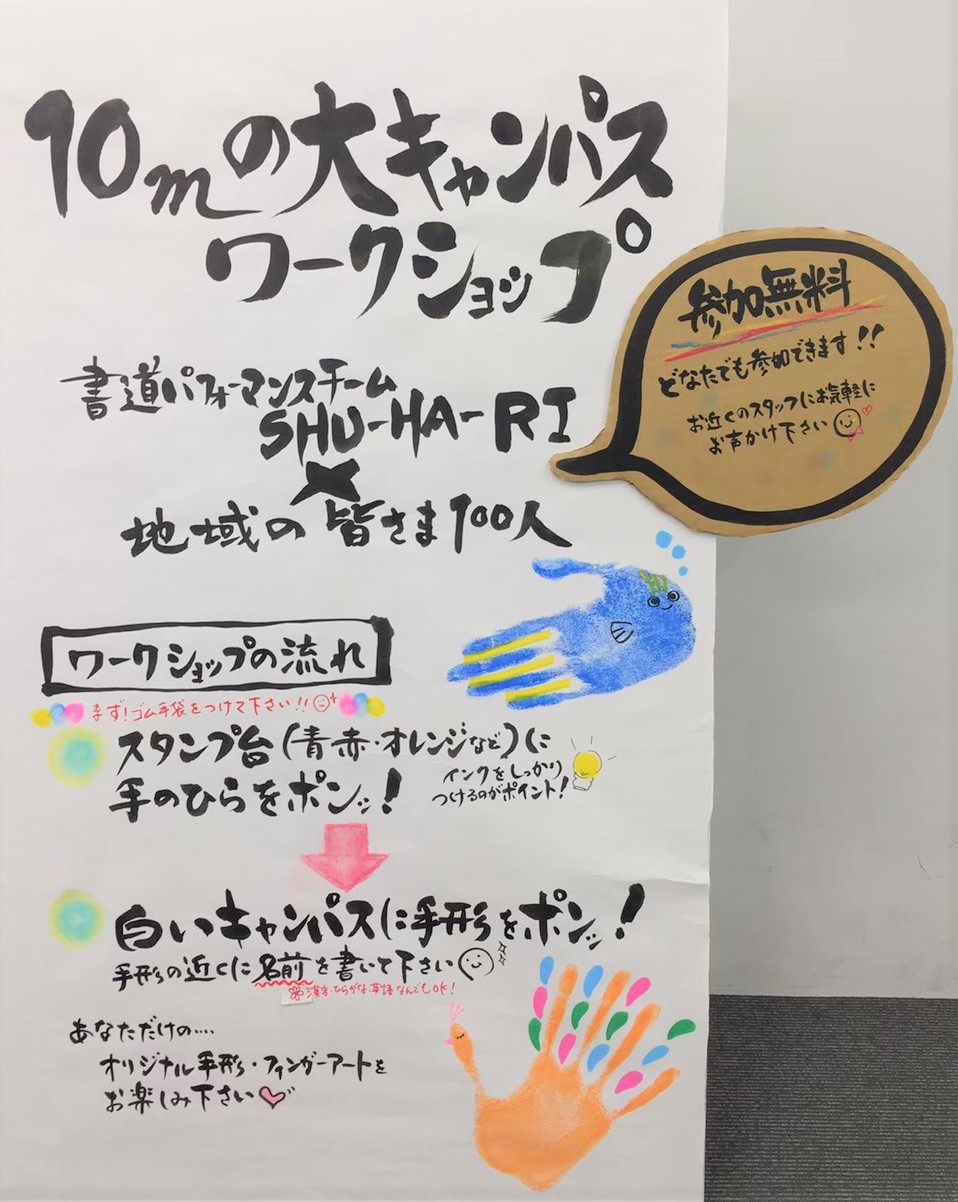 10mの大キャンパス
ワークショップ
参加無料
どなたでも参加できます!!
お近くのスタッフにお気軽に
お声かけ下さい
書道パフォーマンスチーム
SHU-HA-RI
×
地域の皆さま100人
ワークショップの流れ
まず!ゴム手袋をつけて下さい!!
スタンプ台(青・赤・オレンジなど)に
手のひらをポンッ!
インクをしっかり
つけるのがポイント!
白いキャンパスに手形をポンッ!
手形の近くに名前を書いて下さい
※漢字・ひらがな・英語なんでもOK!
あなただけの....
オリジナル手形・フィンガーアートを
お楽しみ下さい